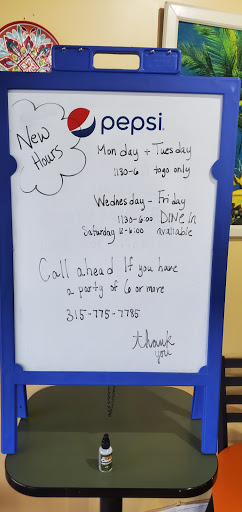 New
Hours
pepsi
Monday + Tuesday
1130-6 togo only
Wednesday - Friday
1130-6:00 DINE in
Saturday 12-6:00 available
Call ahead If you have
a party of 6 or more
315-775-7785
thank
you